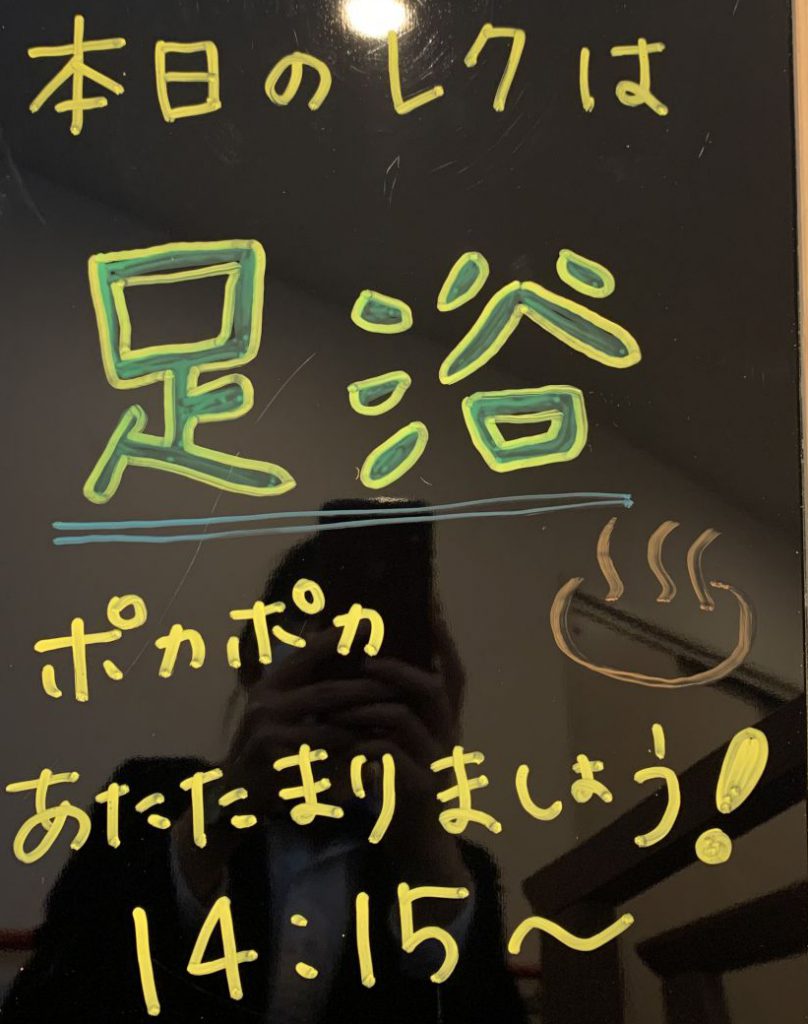 本日のレクは
足浴
ポカポカ
あたたまりましょう!
14:15〜